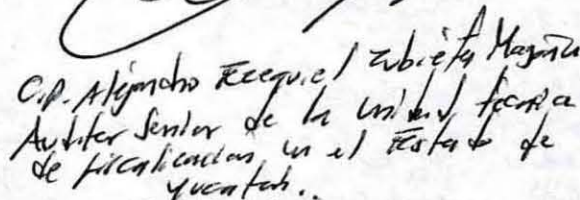 C.P. Alejandro Ezequiel Zubieta Magaña
Auditor Senior de la unidad técnica
de fiscalizacion en el Estado de
Yucatan..